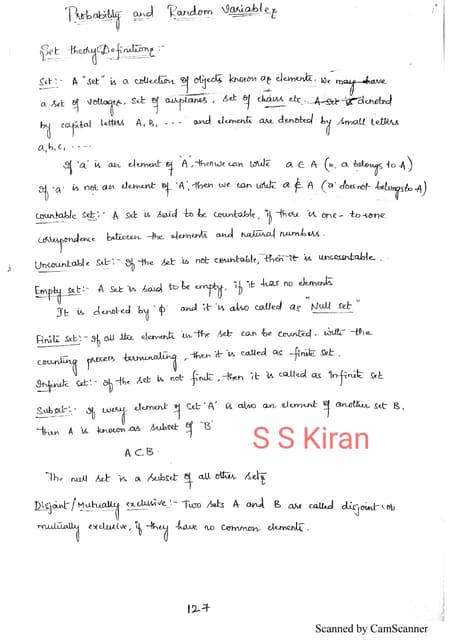 Probability and Random Variables
Set theory Definitions :-
Set :- A "set" is a collection of objects known as elements. We may have
a set of voltages, set of airplanes, set of chairs etc. A set is denoted
by capital letters A, B, ---- and elements are denoted by small letters
a, b, c, ----
If 'a' is an element of 'A', then we can write a ∈ A (a belongs to A)
If 'a' is not an element of 'A', then we can write a ∉ A ('a' does not belongs to A)
Countable set :- A set is said to be countable, if there is one-to-one
correspondence between the elements and natural numbers.
Uncountable set :- If the set is not countable, then it is uncountable.
Empty set :- A set is said to be empty, if it has no elements
It is denoted by 'ϕ' and it is also called as "Null set"
Finite set :- If all the elements in the set can be counted. with the
counting process terminating, then it is called as finite set.
Infinite set :- If the set is not finite, then it is called as Infinite set
Subset :- If every element of set 'A' is also an element of another set B,
then A is known as subset of 'B'
S S Kiran
A ⊂ B
"The null set is a subset of all other sets
Disjoint/Mutually exclusive :- Two sets A and B are called disjoint (or)
mutually exclusive, if they have no common elements.
127
Scanned by CamScanner